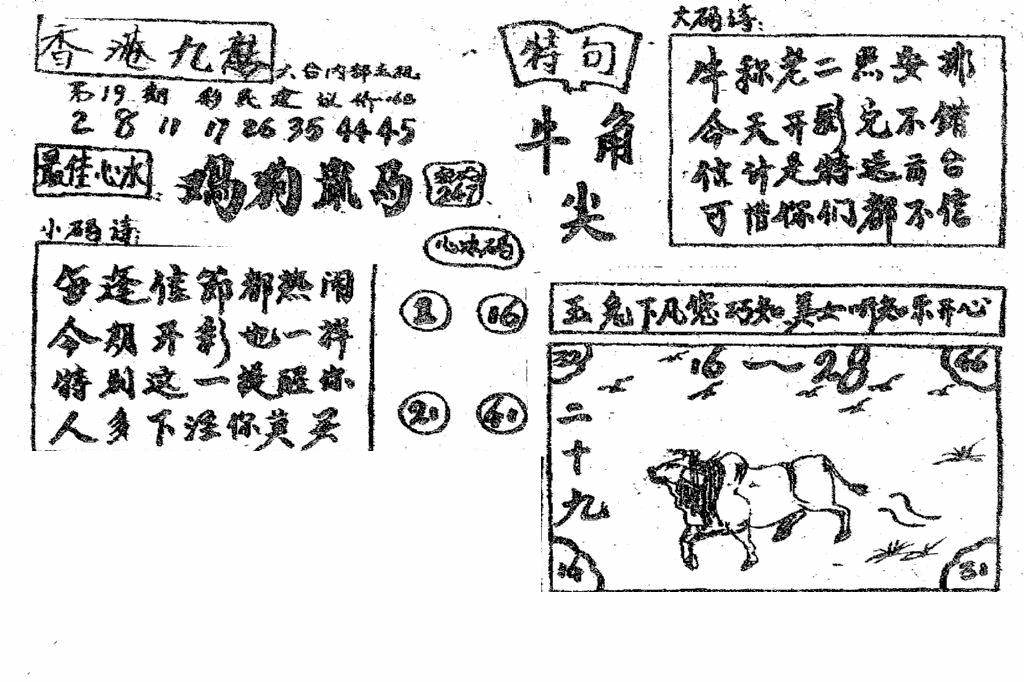 香港九龍
六合内部土祖
第19期 彩民建议价:60
2 8 11 17 26 35 44 45
最佳心水
鸡狗鼠马
247
小码诗:
每逢佳節都热闹
今期开彩也一样
特别这一提醒你
人多下注你莫买
心水码
16
21
41
特句
牛角
尖
大码诗:
牛称老二照安排
今天开彩完不错
估计是特运
可惜你们都不信
玉兔下凡您巧知美女听知乐开心
16一28
66
二十九
14
31